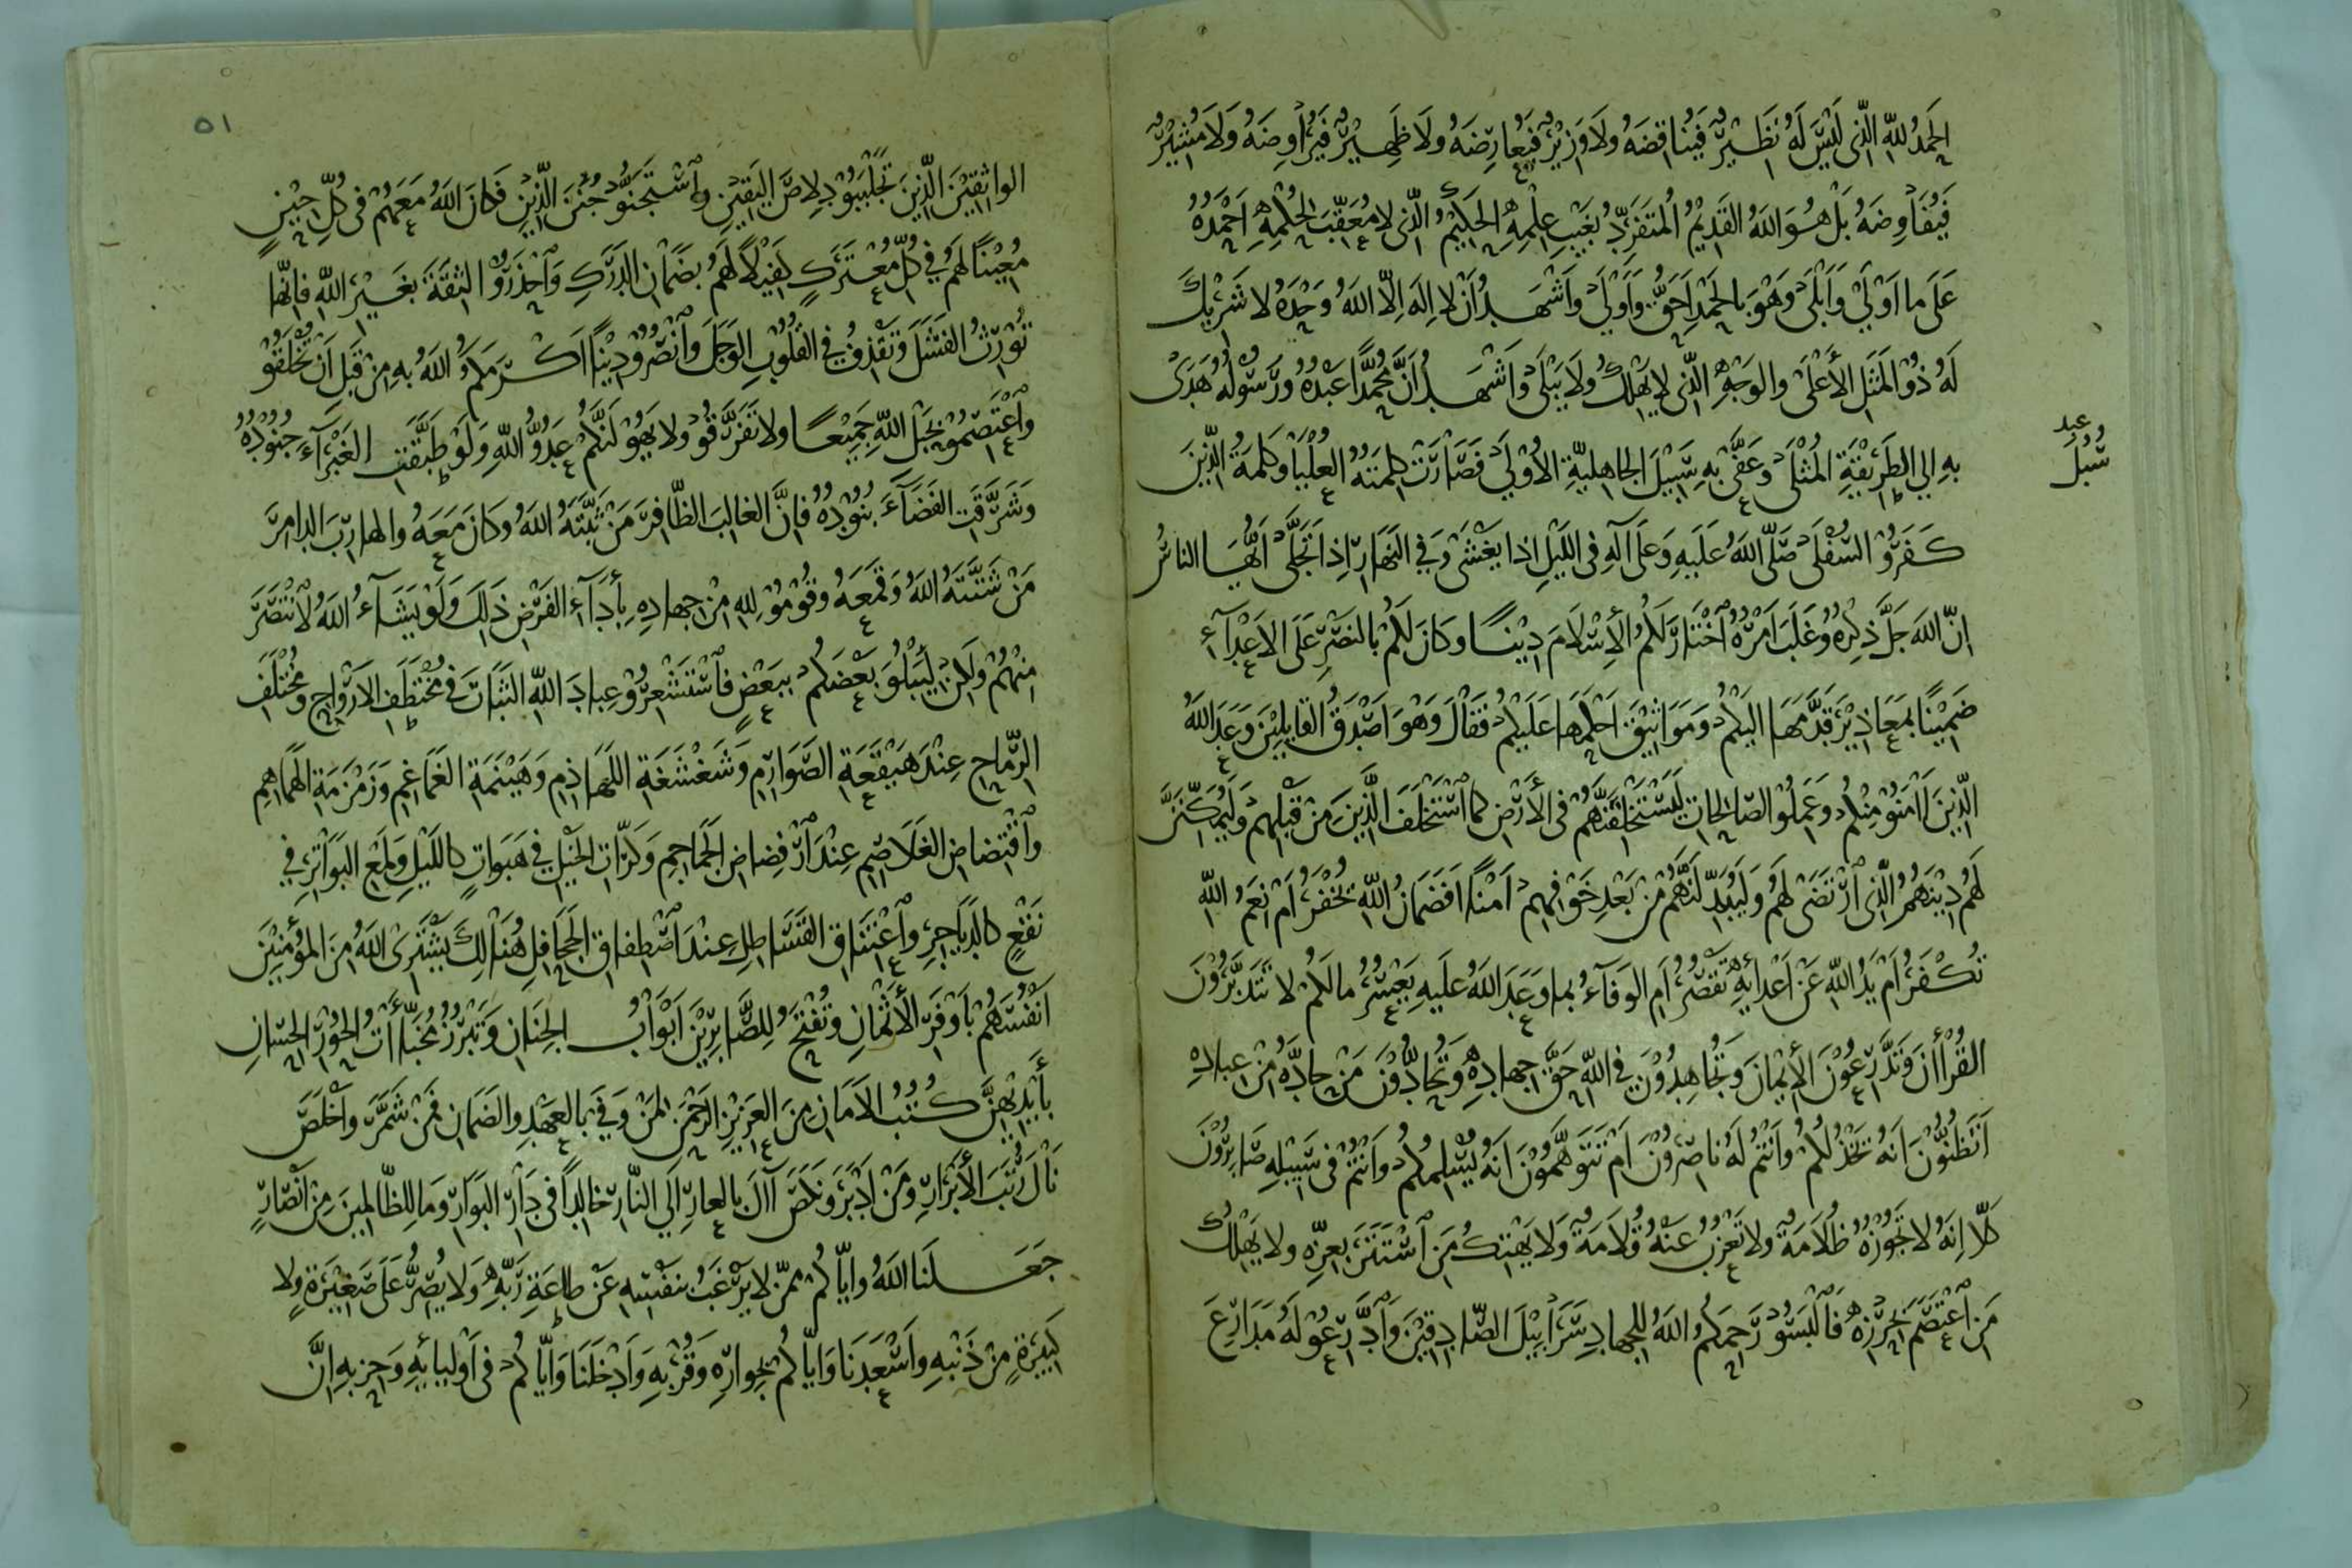 الحَمْدُ للهِ الَّذِى لَيْسَ لَهُ نَظِيْرٌ فَيُنَاقِضَهُ وَلَا وَزِيْرٌ فَيُعَارِضَهُ وَلَا ظَهِيْرٌ فَيُرَاوِضَهُ وَلَا مُشِيْرٌ
فَيُفَاوِضَهُ بَلْ هُوَ اللهُ القَدِيْمُ المُتَفَرِّدُ بِغَيْبِ عِلْمِهِ الحَكِيْمُ الَّذِى لا مُعَقِّبَ لِحُكْمِهِ اَحْمَدُهُ
عَلَى ما اَوْلَى وَاَبْلَى وَهْوَ بِالحَمْدِ اَحَقُّ وَاَوْلَى وَاَشْهَدُ اَنْ لا اِلَهَ اِلَّا اللهُ وَحْدَهُ لا شَرِيْكَ
لَهُ ذُوْ المَثَلِ الأَعْلَى والوَجْهِ الَّذِى لا يَهْلِكُ وَلَا يَبْلَى وَاَشْهَدُ اَنَّ مُحَمَّدًا عَبْدُهُ وَرَسُوْلُهُ هَدَى
بِهِ اِلى الطَرِيْقَةِ المُثْلَى وَعَفَّى بِهِ سَبِيْلَ الجَاهِليَّةِ الاُوْلَى فَصَارَتْ كَلِمَتَهُ العُلْيَا وَكَلِمَةُ الَّذِينَ
عبد
سُبُلَ
كَفَرُوْ السُفْلَى صَلَّى اللهُ عَلَيهِ وَعَلَى آلِهِ فى اللَّيْلِ اِذا يَغْشَى وَفِي النَهَارِ اِذا تَجَلَّى اَيُّهَا الناسُ
اِنَّ اللهَ جَلَّ ذِكْرُهُ وَغَلَبَ اَمْرُهُ اَخْتَارَ لَكُمُ الأِسْلَامَ دِيْنًا وكَانَ لَكُمْ بالنَصْرِ عَلَى الاَعْدَآءِ
ضَمِيْنًا بِمَعَاذِيْرَ قَدَّمَهَا اليَكُمْ وَمَوَاثِيْقَ اَحْكَمَها عَلَيْكُمْ فَقَالَ وَهْوَ اَصْدَقُ القَايِلِيْنَ وَعَدَ اللهُ
الَّذِينَ اآمَنُوْ مِنْكُمْ وعَمِلُوْ الصّالِحَاتِ لَيَسْتَخْلِفَنَّهُمْ فى الأَرْضِ كما اَسْتَخْلَفَ الَّذِينَ مِنْ قَبْلِهِمْ وَلَيُمَكِّنَنَّ
لَهُمْ دِيْنَهُمُ الَّذِى اَرْتَضَى لَهُمْ وَلَيُبَدِّلَنَّهُمْ مِنْ بَعْدِ خَوْفِهِمْ اَمْنًا اَفَضَمَانُ اللهِ تُخْفَرُ اَمْ نِعَمُ اللهِ
تُكْفَرُ اَمْ يَدُ اللهِ عَنْ اَعْدائِهِ تَقْصُرُ اَمِ الوَفَآءُ بما وَعَدَ اللهُ عَلَيهِ يَعْسُرُ ما لَكُمْ لا تَتَدَبَّرُوْنَ
القُرْاَانَ وَتَدَّرِعُوْنَ الأِيْمَانَ وَتُجَاهِدُوْنَ فى اللهِ حَقَّ جِهادِهِ وَتُحَادُّوْنَ مَنْ حادَّهُ مِنْ عِبادِهِ
اَتَظُنُّوْنَ اَنَّهُ يَخْذُلُكُمْ وَاَنْتُمْ لَهُ ناصِرُوْنَ اَمْ تَتَوَهَّمُوْنَ اَنَّهُ يُسْلِمُكُمْ وَاَنْتُمْ فى سَبِيْلِهِ صَابِرُوْنَ
كَلَّا اِنَّهُ لا تَجُوْزُهُ ظُلَامَةٌ وَلا تَعْزُبُ عَنْهُ قُلَامَةٌ وَلَا يَهْتِكُ مَنِ اَسْتَتَرَ بِعِزِّهِ ولا يَهْلِكُ
مَنِ اَعْتَصَمَ بِحِرْزِهِ فَاَلْبَسُوْ رَحِمَكُمُ اللهُ لِلجِهادِ سَرَابِيْلَ الصَّادِقِيْنَ وَاَدَّرِعُوْ لَهُ مَدَارِعَ
٥١
الواثِقِيْنَ الَّذِينَ تَجَلْبَبُوْ دِلاصَ اليَقِيْنِ وَاَسْتَجَنُّوْ جُنَنَ الدِّيْنِ فَكَانَ اللهُ مَعَهُمْ فى كُلِّ حِيْنٍ
مُعِيْنًا لَهُمْ فِي كُلِّ مُعْتَرَكٍ كَفِيْلًا لَهُمْ بِضَمَانِ الدَرَكِ وَاَحْذَرُوْ الثِقَةَ بِغَيْرِ اللهِ فَاِنَّها
تُوْرِثُ الفَشَلَ وَتَقْذِفُ فِي القُلُوْبِ الوَجَلَ وَاَنْصُرُوْ دِيْنًا اَكْرَمَكُمُ اللهُ بِهِ مِنْ قَبَلِ اَنْ تُخْلَقُوْ
وَاَعْتَصِمُوْ بِحَبْلِ اللهِ جَمِيْعًا ولا تَفَرَّقُوْ ولا يَهُوْلَنَّكُمْ عَدُوُّ اللهِ وَلَوْ طَبَّقَتِ الغَبْرَآءَ جُنُوْدُهُ
وَشَرَّقَتِ الفَضَآءَ بُنُوْدُهُ فَاِنَّ الغالِبَ الظّافِرَ مَنْ ثَبَّتَهُ اللهُ وَكانَ مَعَهُ والهارِبَ الدامِرَ
مَنْ شَتَّتَهُ اللهُ وَقَمَعَهُ وَقُوْمُوْ لِلهِ مِنْ جِهادِهِ بِأَدَآءِ الفَرْضِ ذَلِكَ وَلَوْ يَشَآءُ اللهُ لَاَنْتَصَرَ
مِنْهُمْ وَلَكِنْ لِيَبْلُوَ بَعْضَكُمْ بِبَعْضٍ فَاَسْتَشْعِرُوْ عِبادَ اللهِ الثَبَاتَ فى مُخْتَطَفِ الاَرْوَاحِ وَمُخْتَلَفِ
الرِّمَاحِ عِنْدَ هَيْقَعَةِ الصَّوَارِمِ وَشَغْشَغَةِ اللَهَاذِمِ وَهَيْنَمَةِ الغَمَاغِمِ وَزَمْزَمَةِ الهَمَاهِمِ
وَاَقْتِضاضِ الغَلَاصِمِ عِنْدَ اَرْفِضاضِ الجَمَاجِمِ وَكَرَّاتِ الخَيْلِ فِي هَبَواتٍ كاللَيْلِ وَلَمْعِ البَوَاتِرِ فِي
نَقْعٍ كالدَيَاجِرِ وَاَعْتِنَاقِ القَسَاطِلِ عِنْدَ اَصْطِفاقِ الجَحَافِلِ هُنَالِكَ يَشْتَرِى اللهُ مِنَ المُؤْمِنِيْنَ
اَنْفُسَهُمْ بِأَوْفَرِ الأَثْمَانِ وَتُفْتَحُ لِلصَّابِرِيْنَ اَبْوَابُ الجِنَانِ وَتَبْرُزُ مُخَبَّأَتُ الحُوْرِ الحِسَانِ
بِأَيْدِيْهِنَّ كُتُبُ الاَمَانِ مِنَ العَزِيْزِ الرَحْمَنِ لِمَنْ وَفَى بِالعَهْدِ وَالضَمَانِ فَمَنْ شَمَّرَ وَاَخْلَصَ
نَالَ رُتَبَ الأَبْرَارِ وَمَنْ اَدْبَرَ وَنَكَصَ اآلَ بِالعارِ اِلَى النّارِ خالِدًا فى دَارِ البَوَارِ وَما لِلظّالِمِينَ مِنْ اَنْصَارٍ
جَعَلَنَا اللهُ وَاِيَّاكُمْ مِمَّنْ لا يَرْغَبُ بِنَفْسِهِ عَنْ طاعَةِ رَبِّهِ وَلا يُصِرُّ عَلَى صَغِيْرَةٍ ولا
كَبِيْرَةٍ مِنْ ذَنْبِهِ وَاَسْعَدَنَا وَاِيّاكُمْ بِجِوارِهِ وَقُرْبِهِ وَاَدْخَلَنَا وَاِيّاكُمْ فى اَوْلِيايِهِ وَحِزْبِهِ اِنَّ